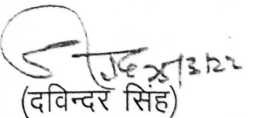 25/3/22
(दविन्दर सिंह)